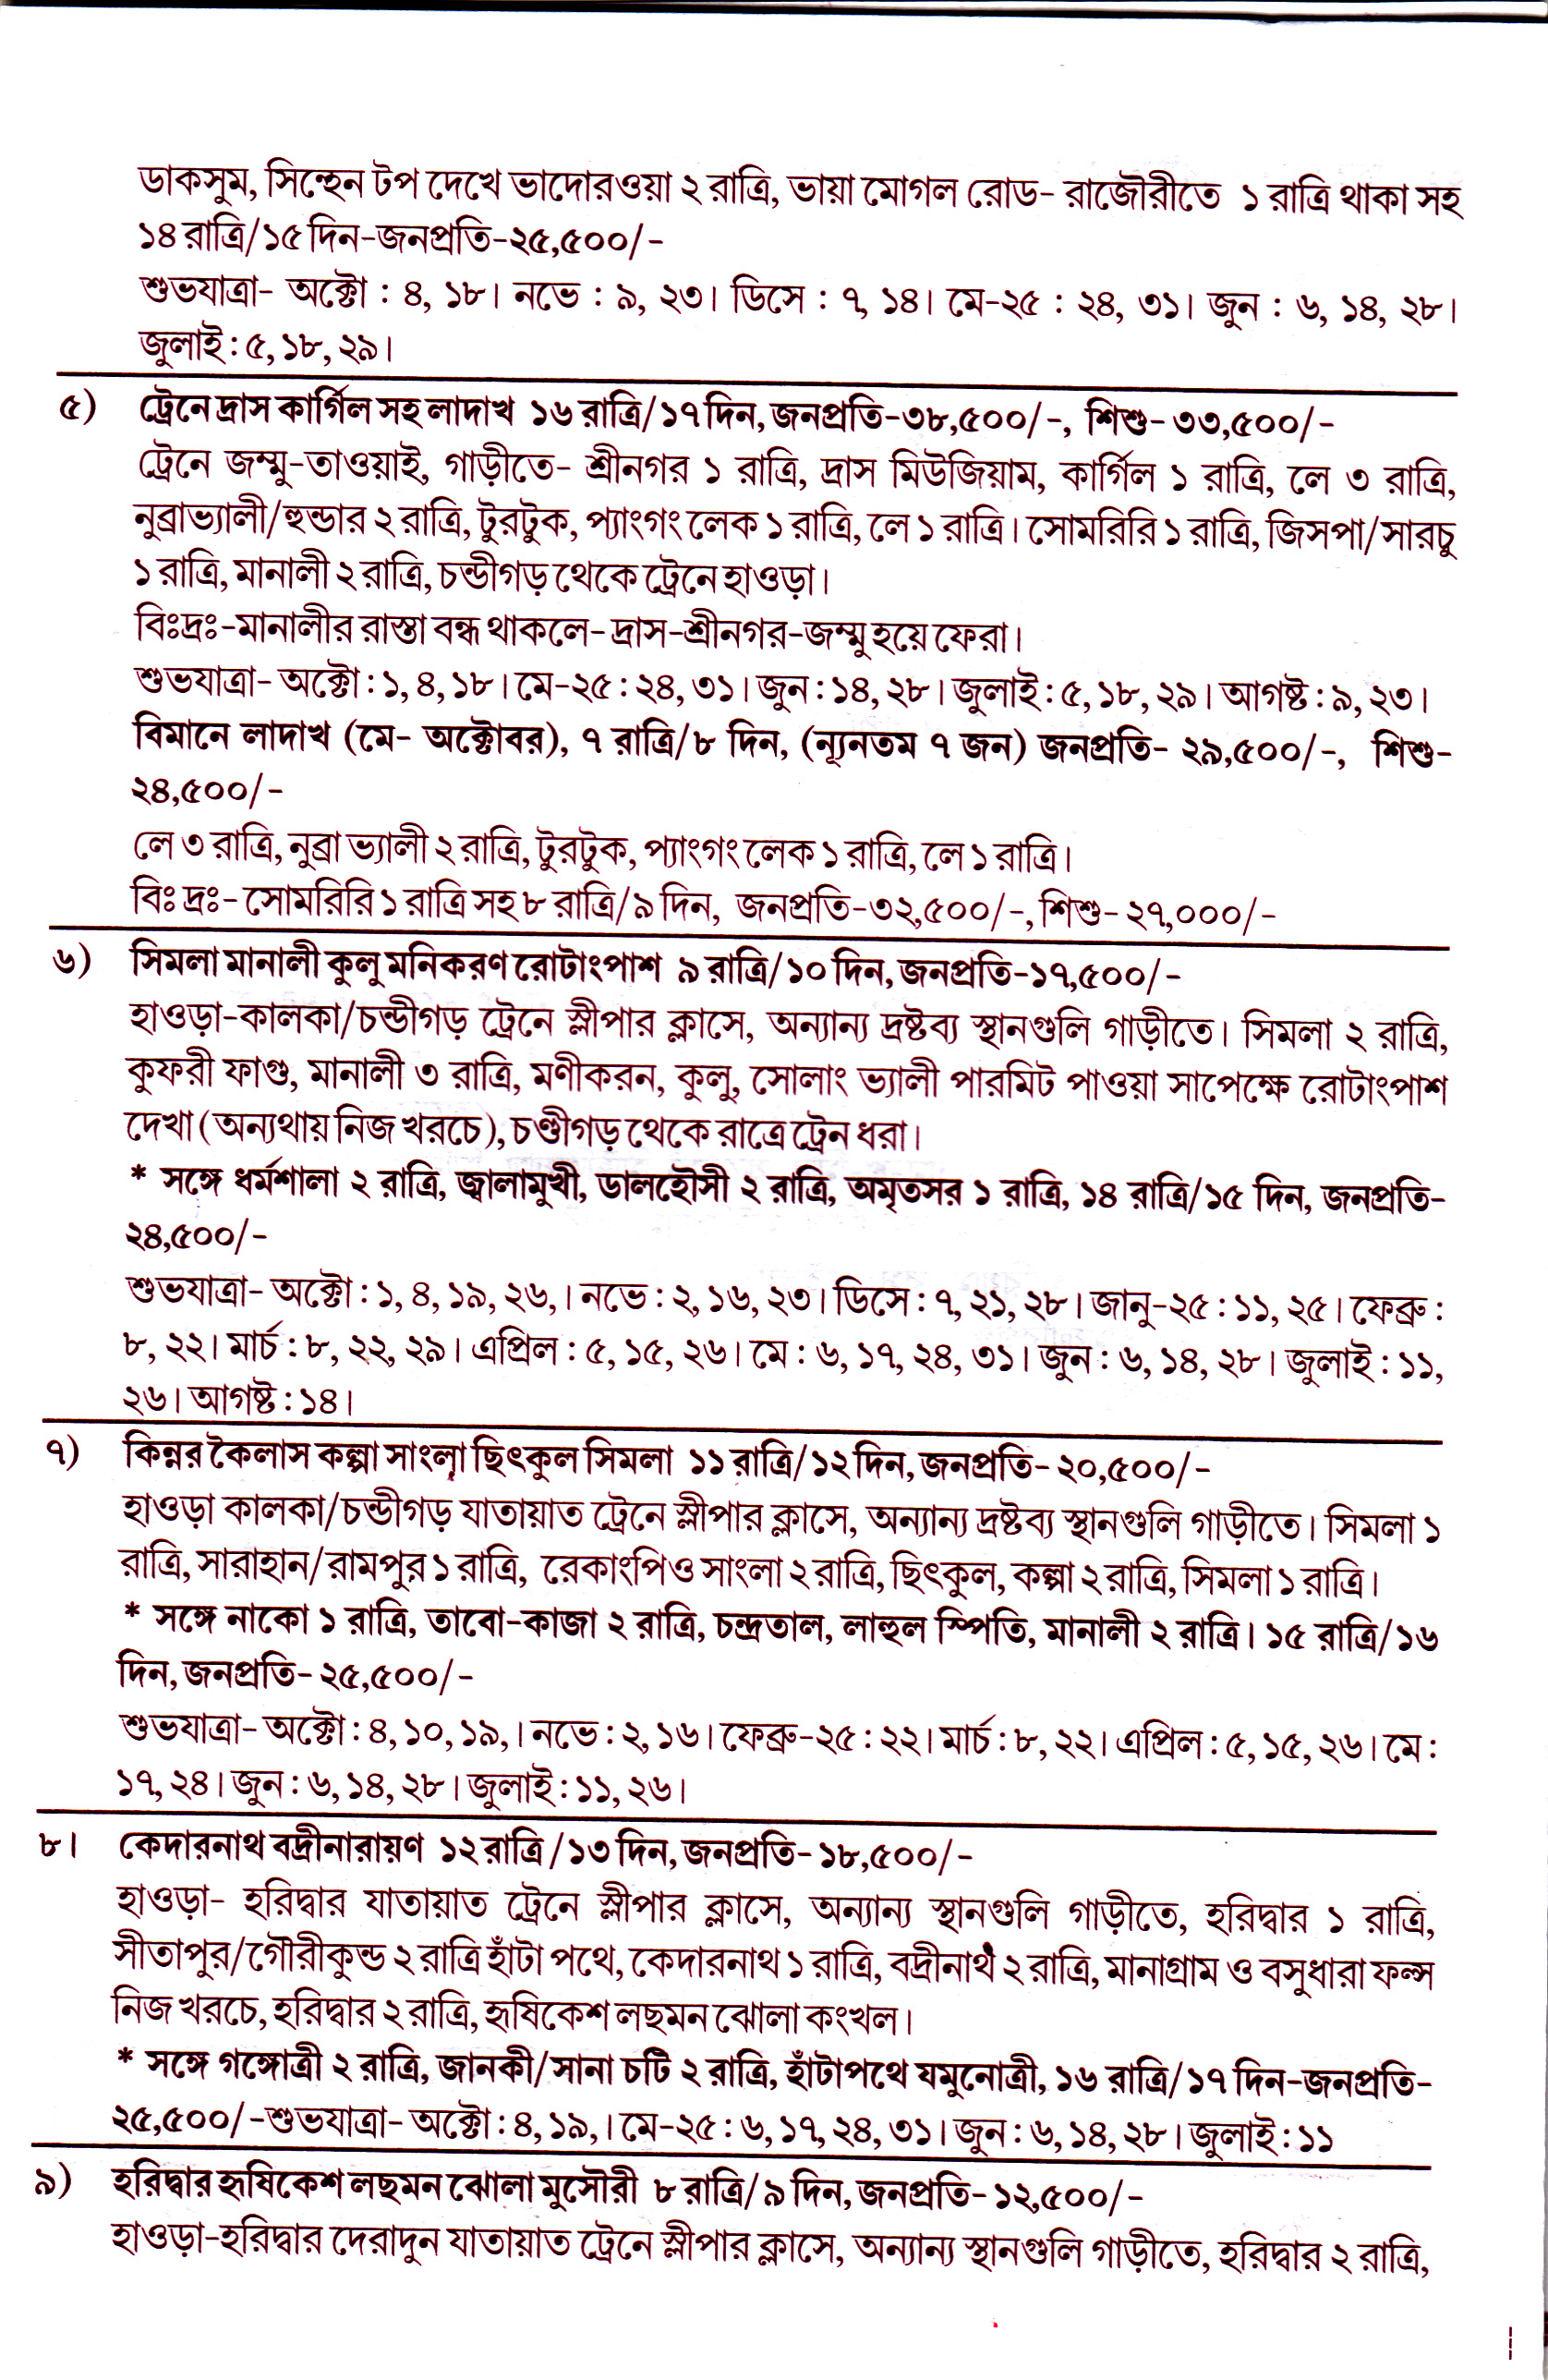 ডাকসুম, সিন্হেন টপ দেখে ভাদোরওয়া ২ রাত্রি, ভায়া মোগল রোড- রাজৌরীতে ১ রাত্রি থাকা সহ
১৪ রাত্রি/১৫ দিন-জনপ্রতি-২৫,৫০০/-
শুভযাত্রা- অক্টো : ৪, ১৮। নভে : ৯, ২৩। ডিসে : ৭, ১৪। মে-২৫ : ২৪, ৩১। জুন : ৬, ১৪, ২৮।
জুলাই : ৫, ১৮, ২৯।
৫) ট্রেনে দ্রাস কার্গিল সহ লাদাখ ১৬ রাত্রি/১৭ দিন, জনপ্রতি-৩৮,৫০০/-, শিশু- ৩৩,৫০০/-
ট্রেনে জম্মু-তাওয়াই, গাড়ীতে- শ্রীনগর ১ রাত্রি, দ্রাস মিউজিয়াম, কার্গিল ১ রাত্রি, লে ৩ রাত্রি,
নুব্রাভ্যালী/হুন্ডার ২ রাত্রি, টুরটুক, প্যাংগং লেক ১ রাত্রি, লে ১ রাত্রি। সোমরিরি ১ রাত্রি, জিসপা/সারচু
১ রাত্রি, মানালী ২ রাত্রি, চন্ডীগড় থেকে ট্রেনে হাওড়া।
বিঃদ্রঃ-মানালীর রাস্তা বন্ধ থাকলে- দ্রাস-শ্রীনগর-জম্মু হয়ে ফেরা।
শুভযাত্রা- অক্টো : ১, ৪, ১৮। মে-২৫ : ২৪, ৩১। জুন : ১৪, ২৮। জুলাই : ৫, ১৮, ২৯। আগষ্ট : ৯, ২৩।
বিমানে লাদাখ (মে- অক্টোবর), ৭ রাত্রি/৮ দিন, (ন্যূনতম ৭ জন) জনপ্রতি- ২৯,৫০০/-, শিশু-
২৪,৫০০/-
লে ৩ রাত্রি, নুব্রা ভ্যালী ২ রাত্রি, টুরটুক, প্যাংগং লেক ১ রাত্রি, লে ১ রাত্রি।
বিঃ দ্রঃ- সোমরিরি ১ রাত্রি সহ ৮ রাত্রি/৯ দিন, জনপ্রতি-৩২,৫০০/-, শিশু- ২৭,০০০/-
৬) সিমলা মানালী কুলু মনিকরণ রোটাংপাশ ৯ রাত্রি/১০ দিন, জনপ্রতি-১৭,৫০০/-
হাওড়া-কালকা/চন্ডীগড় ট্রেনে স্লীপার ক্লাসে, অন্যান্য দ্রষ্টব্য স্থানগুলি গাড়ীতে। সিমলা ২ রাত্রি,
কুফরী ফাগু, মানালী ৩ রাত্রি, মণীকরন, কুলু, সোলাং ভ্যালী পারমিট পাওয়া সাপেক্ষে রোটাংপাশ
দেখা (অন্যথায় নিজ খরচে), চণ্ডীগড় থেকে রাত্রে ট্রেন ধরা।
* সঙ্গে ধর্মশালা ২ রাত্রি, জ্বালামুখী, ডালহৌসী ২ রাত্রি, অমৃতসর ১ রাত্রি, ১৪ রাত্রি/১৫ দিন, জনপ্রতি-
২৪,৫০০/-
শুভযাত্রা- অক্টো : ১, ৪, ১৯, ২৬,। নভে : ২, ১৬, ২৩। ডিসে : ৭, ২১, ২৮। জানু-২৫ : ১১, ২৫। ফেব্রু :
৮, ২২। মার্চ : ৮, ২২, ২৯। এপ্রিল : ৫, ১৫, ২৬। মে : ৬, ১৭, ২৪, ৩১। জুন : ৬, ১৪, ২৮। জুলাই : ১১,
২৬। আগষ্ট : ১৪।
৭) কিন্নর কৈলাস কল্পা সাংলা ছিৎকুল সিমলা ১১ রাত্রি/১২ দিন, জনপ্রতি- ২০,৫০০/-
হাওড়া কালকা/চন্ডীগড় যাতায়াত ট্রেনে স্লীপার ক্লাসে, অন্যান্য দ্রষ্টব্য স্থানগুলি গাড়ীতে। সিমলা ১
রাত্রি, সারাহান/রামপুর ১ রাত্রি, রেকাংপিও সাংলা ২ রাত্রি, ছিৎকুল, কল্পা ২ রাত্রি, সিমলা ১ রাত্রি।
* সঙ্গে নাকো ১ রাত্রি, তাবো-কাজা ২ রাত্রি, চন্দ্রতাল, লাহুল স্পিতি, মানালী ২ রাত্রি। ১৫ রাত্রি/১৬
দিন, জনপ্রতি- ২৫,৫০০/-
শুভযাত্রা- অক্টো : ৪, ১০, ১৯,। নভে : ২, ১৬। ফেব্রু-২৫ : ২২। মার্চ : ৮, ২২। এপ্রিল : ৫, ১৫, ২৬। মে :
১৭, ২৪। জুন : ৬, ১৪, ২৮। জুলাই : ১১, ২৬।
৮। কেদারনাথ বদ্রীনারায়ণ ১২ রাত্রি / ১৩ দিন, জনপ্রতি- ১৮,৫০০/-
হাওড়া- হরিদ্বার যাতায়াত ট্রেনে স্লীপার ক্লাসে, অন্যান্য স্থানগুলি গাড়ীতে, হরিদ্বার ১ রাত্রি,
সীতাপুর/গৌরীকুন্ড ২ রাত্রি হাঁটা পথে, কেদারনাথ ১ রাত্রি, বদ্রীনাথ ২ রাত্রি, মানাগ্রাম ও বসুধারা ফল্স
নিজ খরচে, হরিদ্বার ২ রাত্রি, হৃষিকেশ লছমন ঝোলা কংখল।
* সঙ্গে গঙ্গোত্রী ২ রাত্রি, জানকী/সানা চটি ২ রাত্রি, হাঁটাপথে যমুনোত্রী, ১৬ রাত্রি/১৭ দিন-জনপ্রতি-
২৫,৫০০/-শুভযাত্রা- অক্টো : ৪, ১৯,। মে-২৫ : ৬, ১৭, ২৪, ৩১। জুন : ৬, ১৪, ২৮। জুলাই : ১১
৯) হরিদ্বার হৃষিকেশ লছমন ঝোলা মুসৌরী ৮ রাত্রি/৯ দিন, জনপ্রতি- ১২,৫০০/-
হাওড়া-হরিদ্বার দেরাদুন যাতায়াত ট্রেনে স্লীপার ক্লাসে, অন্যান্য স্থানগুলি গাড়ীতে, হরিদ্বার ২ রাত্রি,